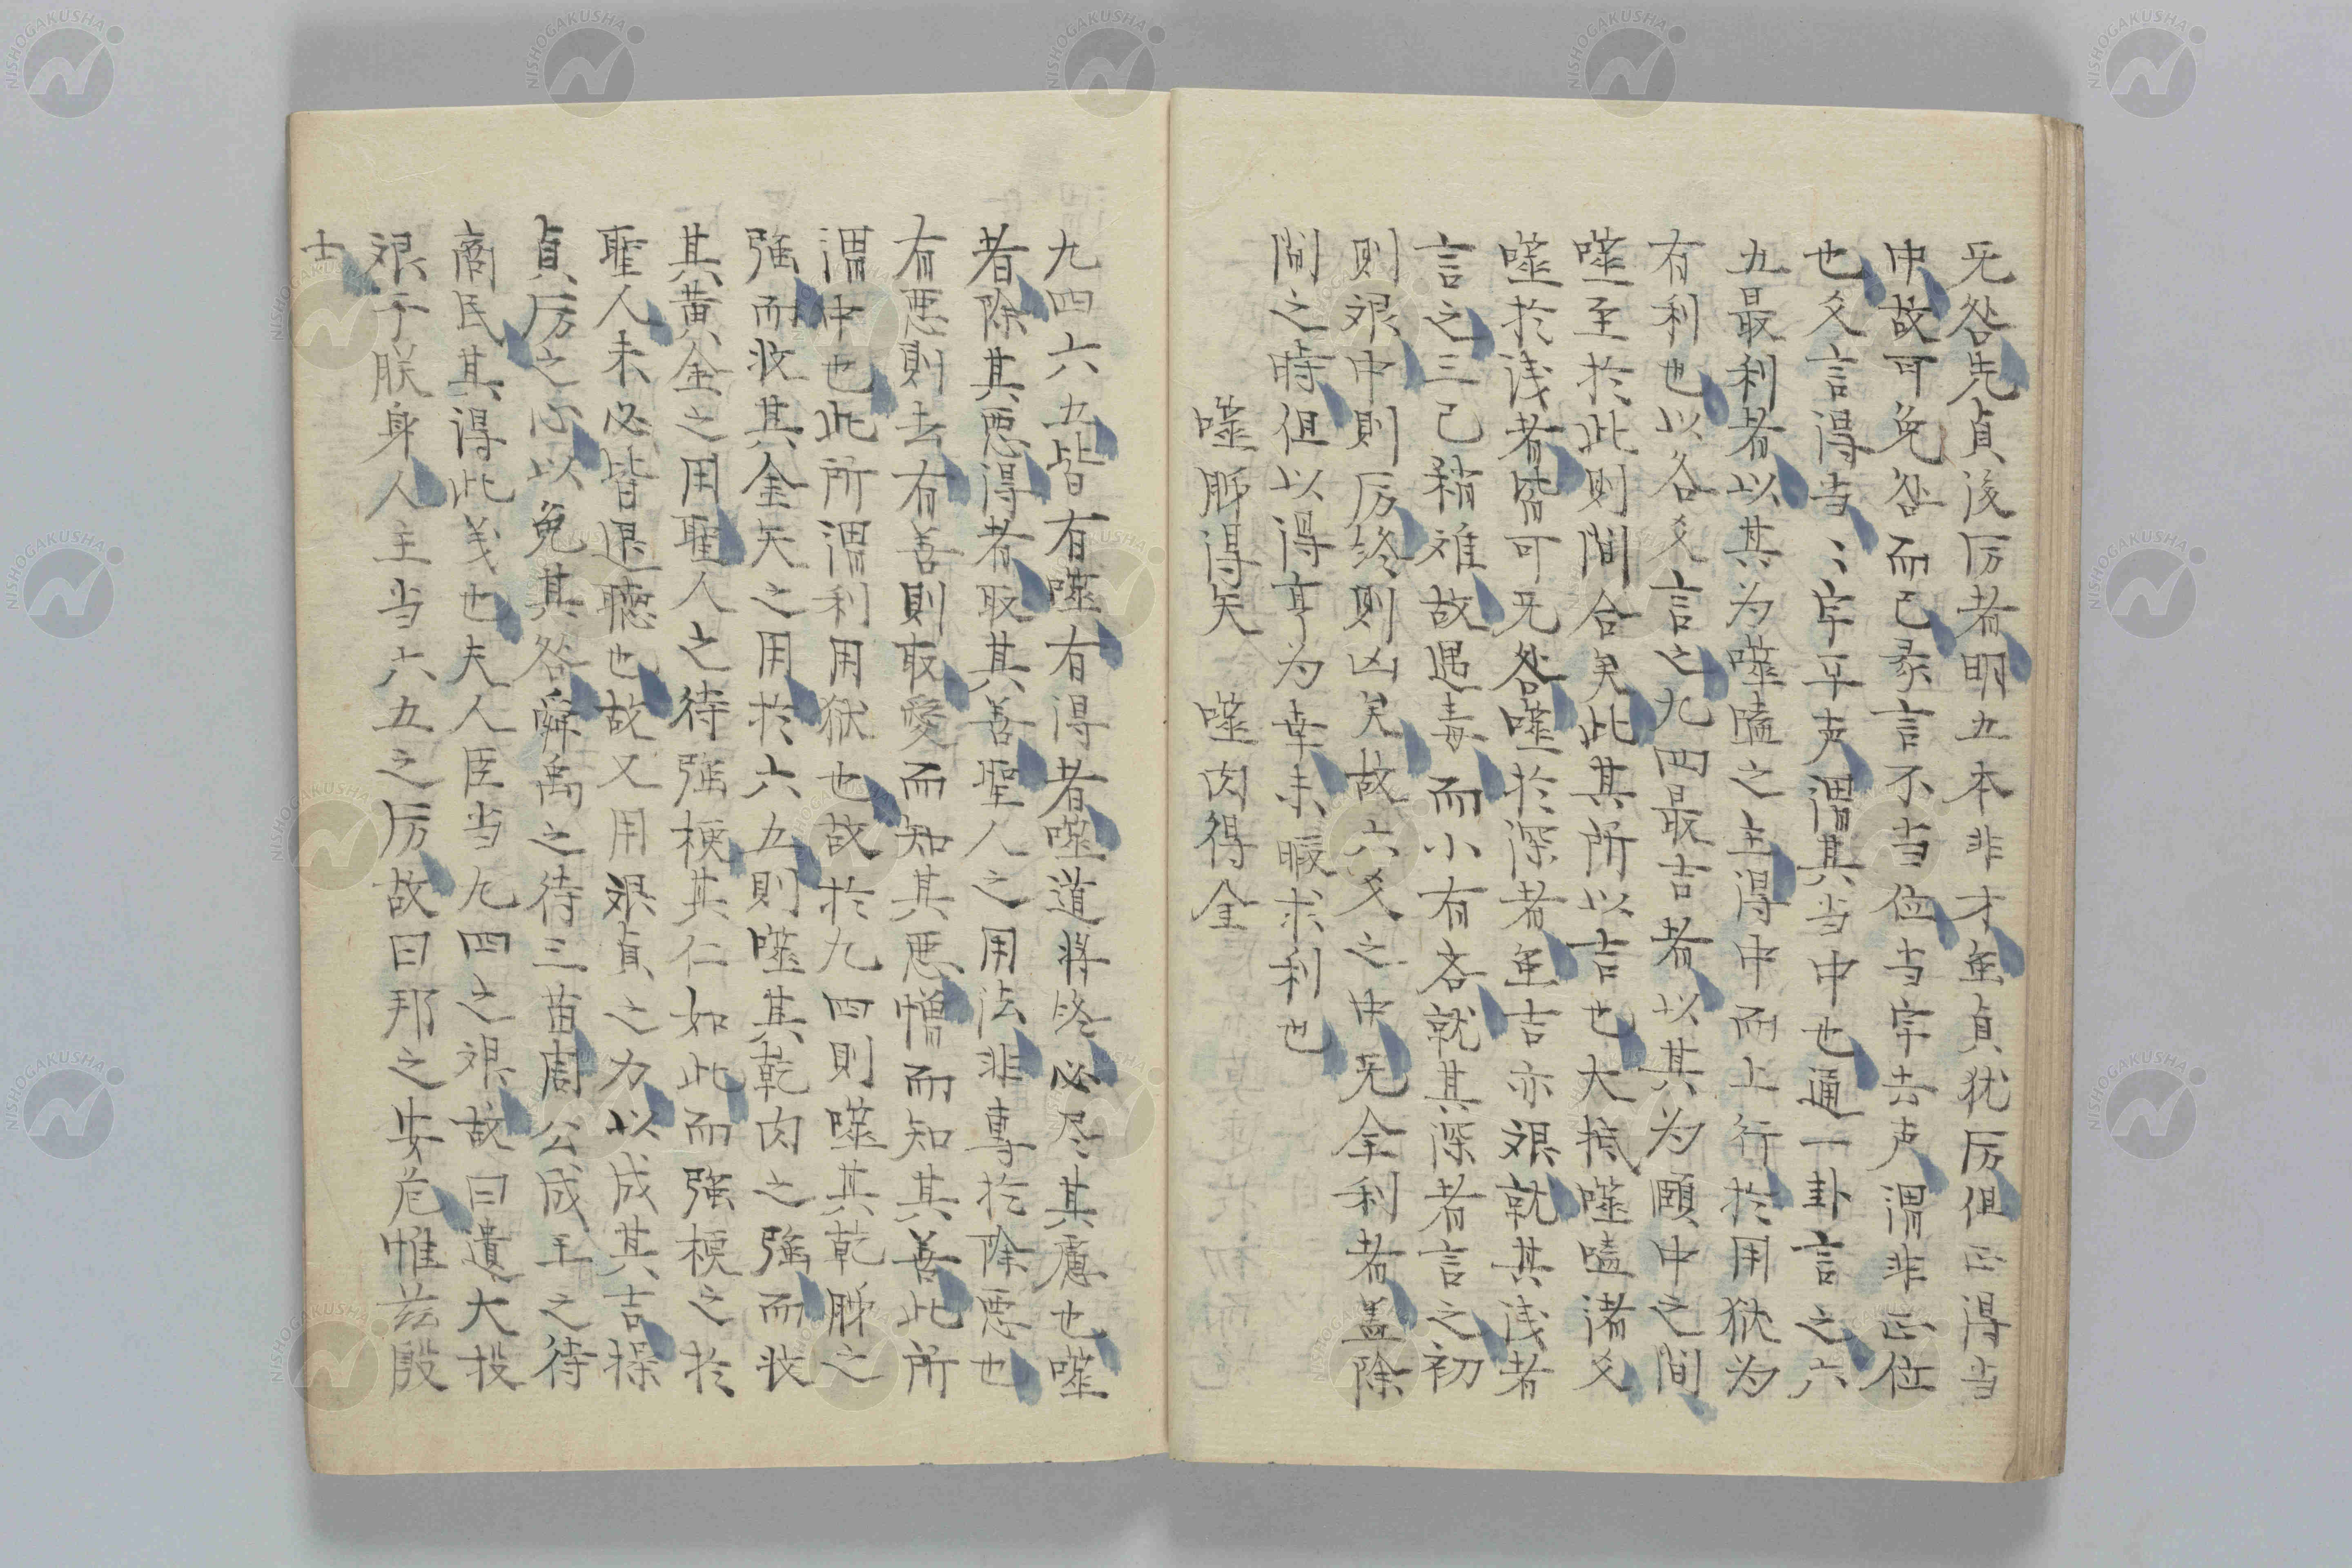 无咎先貞後厉者明五本非才無貞犹厉但正得当
中故可免咎而已彖言不当位当字去声謂非正位
也爻言得当〻字平声謂其当中也通一卦言之六
五最利者以其为噬嗑之主得中而上行於用狱为
有利也以各爻言之九四最吉者以其为頤中之間
噬至於此則間合矣此其所以吉也大抵噬嗑诸爻
噬於浅者皆可无咎噬於深者無吉亦艰就其浅者
言之三已稍难故遇毒而小有吝就其深者言之初
則艰中則厉終則凶矣故六爻之中无全利者盖除
間之時但以得亨为幸未暇求利也
噬胏得矢　噬肉得金
九四六五皆有噬有得者噬道将終必尽其慮也噬
者除其恶得者取其善聖人之用法非專於除恶也
有恶則去有善則取愛而知其恶憎而知其善此所
謂中也此所謂利用狱也故於九四則噬其乾胏之
強而收其金矢之用於六五則噬其乾肉之強而收
其黄金之用聖人之待強梗其仁如此而強梗之於
聖人未必皆退聽也故又用艰貞之力以成其吉操
貞厉之心以免其咎舜禹之待三苗周公成王之待
商民其得此義也夫人臣当九四之艰故曰遺大投
艰于朕身人主当六五之厉故曰邦之安危惟兹殷
士